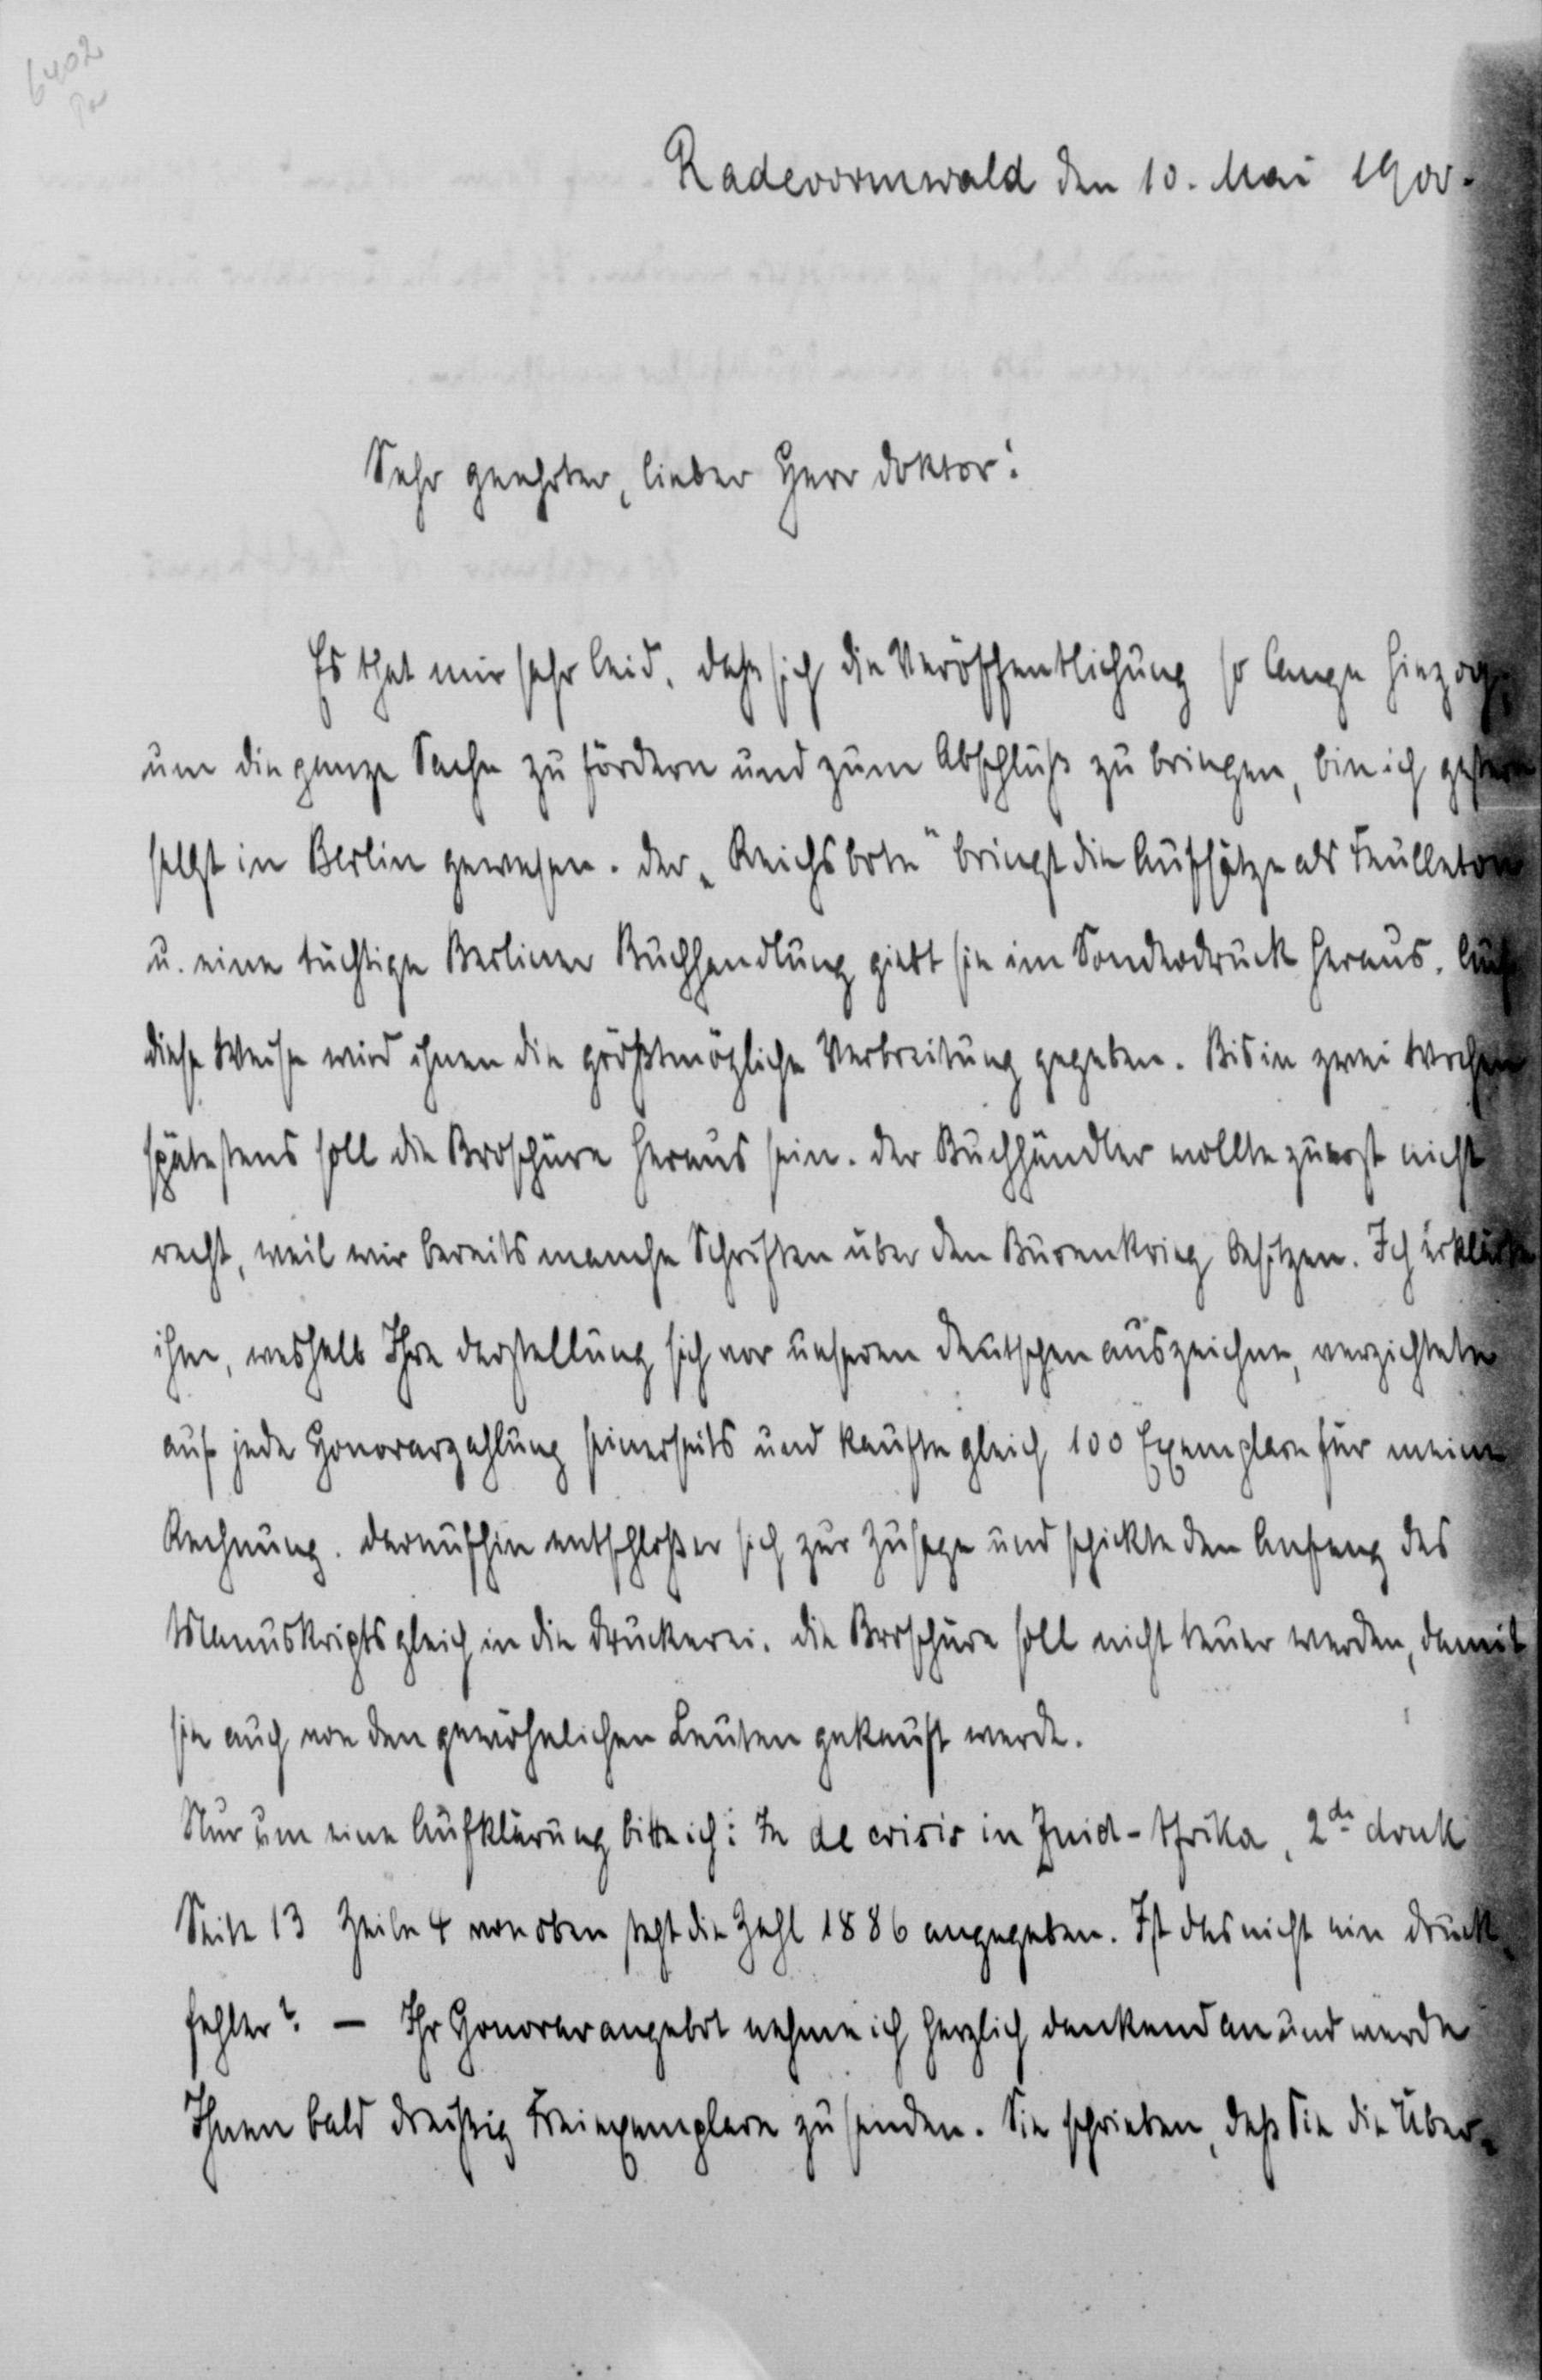 6402
Radevormwald den 10. Mai 1900.
Sehr geehrter, lieber Herr Doktor!
Es that mir sehr leid, daß sich die Veröffentlichung so lange hinzog;
um die ganze Sache zu fördern und zum Abschluß zu bringen, bin ich gestern
selbst in Berlin gewesen. Der „Reichsbote“ bringt die Aufsätze als Feulleton
u. eine tüchtige Berliner Buchhandlung giebt sie im Sonderdruck heraus. Auf
diese Weise wird ihnen die größtmögliche Verbreitung gegeben. Bis in zwei Wochen
spätestens soll die Broschüre heraus sein. Der Buchhändler wollte zuerst nicht
recht, weil wir bereits manche Schriften über den Burenkrieg besitzen. Ich erklärte
ihm, weshalb Ihre Darstellung sich vor unseren deutschen auszeichne, verzichtete
auf jede Honorarzahlung seinerseits und kaufte gleich 100 Exemplare für meine
Rechnung. Daraufhin entschloß er sich zur Zusage und schickte den Anfang des
Manuskripts gleich in die Druckerei. Die Broschüre soll nicht teuer werden, damit
sie auch von den gewöhnlichen Leuten gekauft werde.
Nur um eine Aufklärung bitte ich: In de crisis in Zuid-Afrika, 2de druk
Seite 13 Zeile 4 von oben steht die Zahl 1886 angegeben. Ist das nicht ein Druck-
fehler? — Ihr Honorarangebot nehme ich herzlich dankend an und werde
Ihnen bald dreißig Freiexemplare zusenden. Sie schrieben, daß Sie die Über-